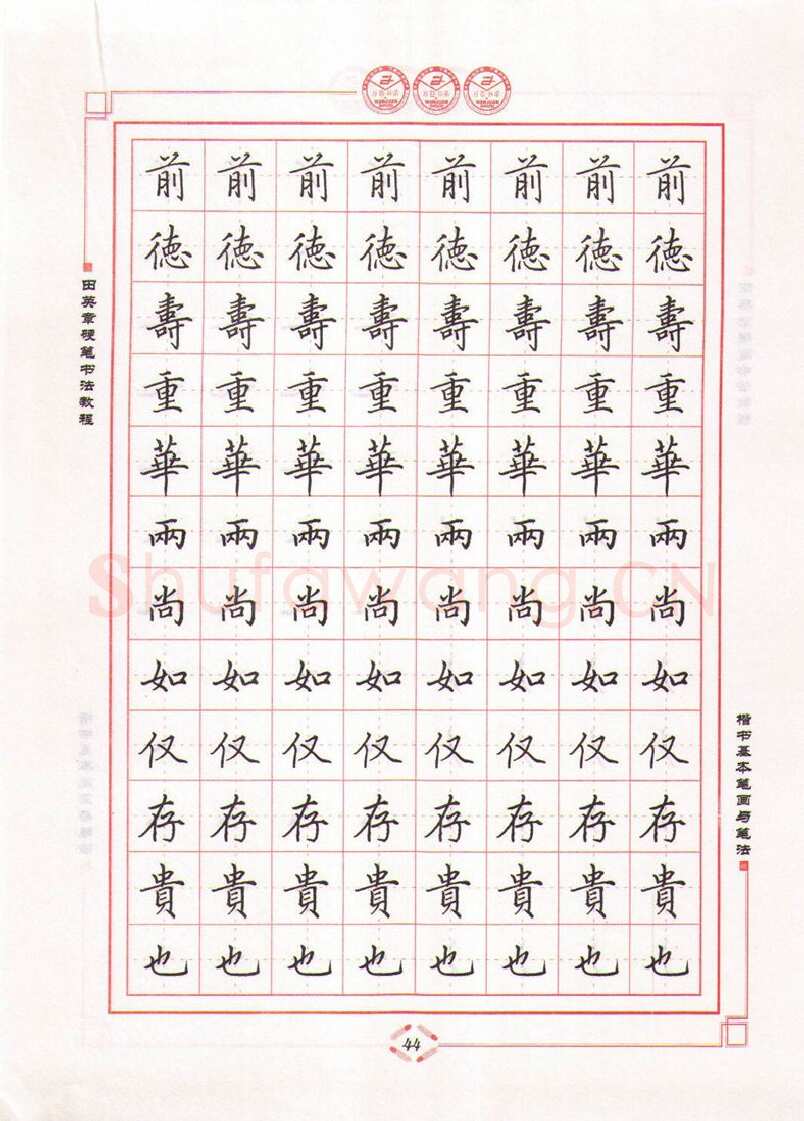 田英章硬笔书法教程
前前前前前前前前
德德德德德德德德
壽壽壽壽壽壽壽壽
重重重重重重重重
華華華華華華華華
兩兩兩兩兩兩兩兩
尚尚尚尚尚尚尚尚
如如如如如如如如
仅仅仅仅仅仅仅仅
存存存存存存存存
貴貴貴貴貴貴貴貴
也也也也也也也也
Shufawang.CN
楷书基本笔画与笔法
44